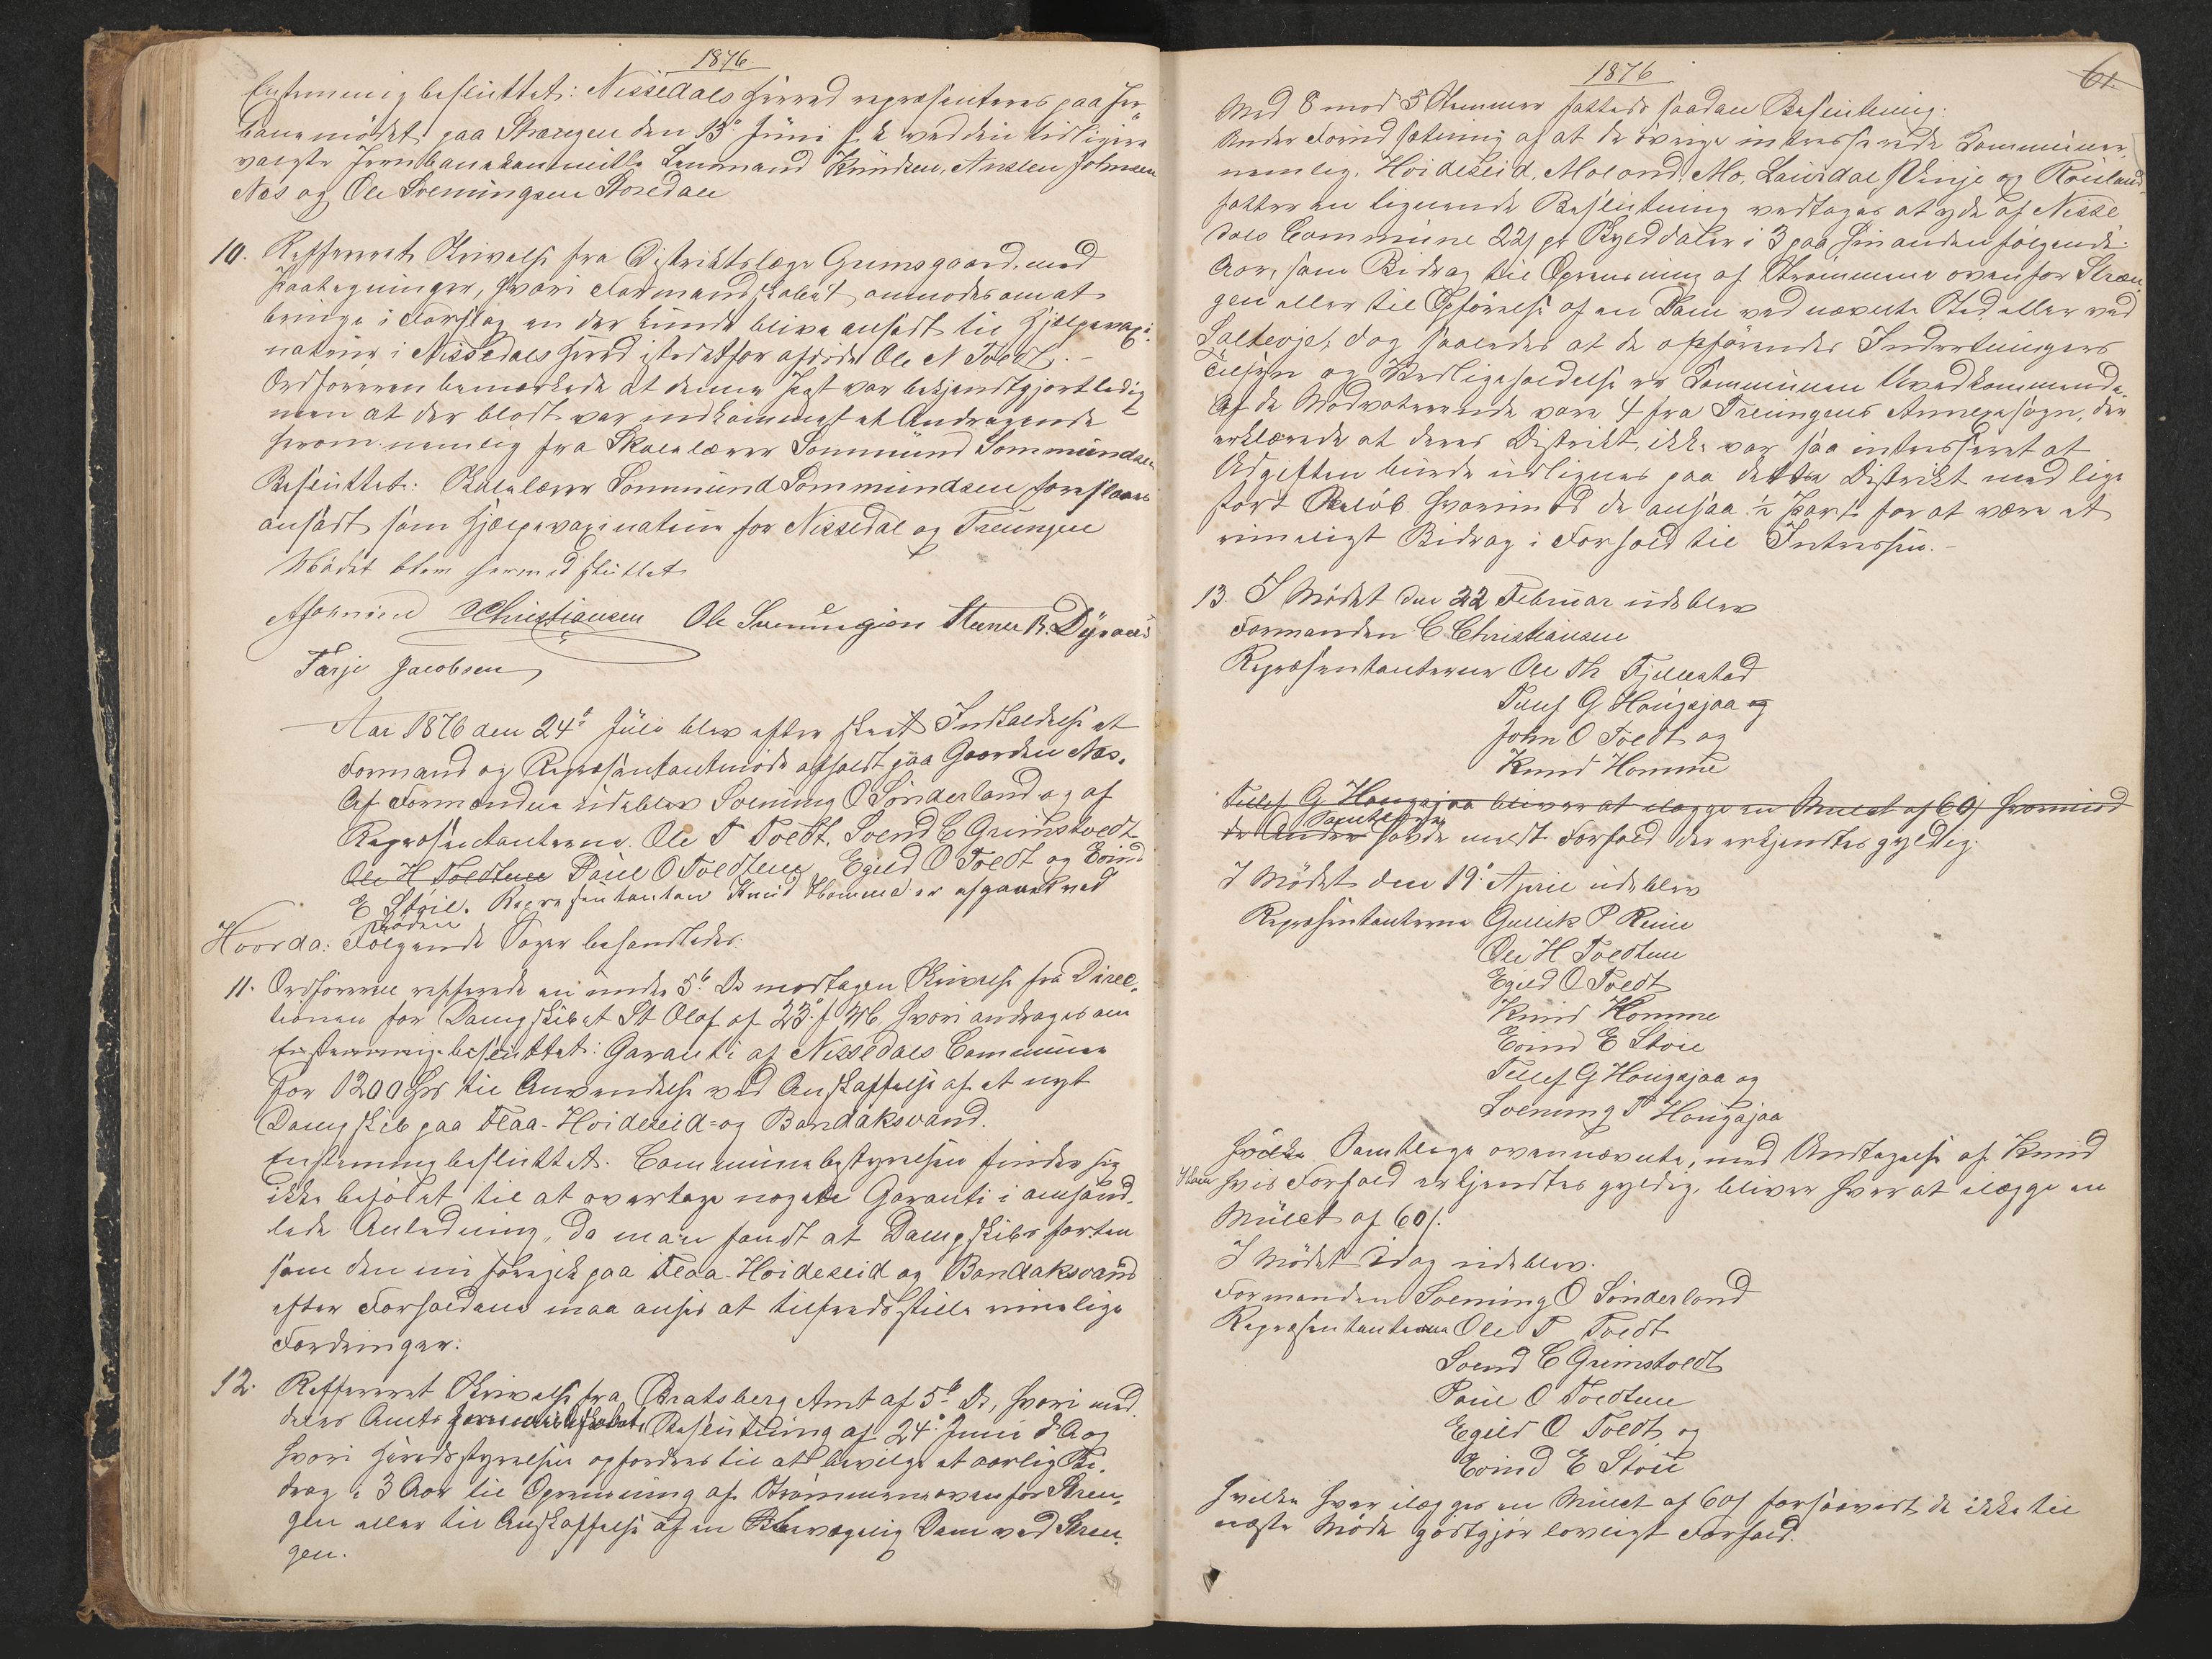 1876
Enstemmig besluttet: Nissedals Herred repræsenteres paa Jer-
banemødet paa Strængen den 13de Juni d. A. ved den tidligere
valgte Jernbanekommitte Lensmand Knudsen, Anslen Johnsen
Næs og Ole Sveningsen Rosedale
10. Reffereret Skrivelse fra Distriktslæge Gumsgaard, med
Paategninger, hvori Formandskabet anmodes om at
bringe i Forslag en der kunde blive ansadt til Hjælpevaxi-
natør i Nissedals Herred istedetfor afdøde Ole N Tvedt.-
Ordføreren bemærkede at denne Post var bekjendtgjort ledig
men at der blodt var indkommet et Andragende
herom nemlig fra Skolelærer Sommund Sommundsen
Besluttet: Skolelærer Sommund Sommundsen foreslaaes
ansadt som Hjælpevaxinatør for Nissedal og Treungen
Mødet blev hermed sluttet
C Christiansen Ole Sveinungsen Steener B. Dyraas
Tarje Jacobsen
Aar 1876 den 24de Juli blev efter skeet Indkaldelse et
Formand og Repræsentantmøde afholdt paa Gaarden Næs.
Af Formændene udeblev Svening O Sönderland og af
Repræsentanterne Ole T Tvedt, Svend C Grimstvedt
Ole H Tvedtene Paul O Tvedtene Egild O Tvedt og Eivind
E Støil. Repræsentanten Knud Homme er afgaaet ved
Døden
Hvorda: Følgende Sager behandledes:
11. Ordføreren refererede en under 5te Ds modtagen Skrivelse fra Direc-
tionen for Dampskibet St Olaf af 23de f M, hvori andrages om
Enstemmig besluttet: Garanti af Nissedals Commune
for 1200 Spd til Anvendelse ved Anskaffelse af et nyt
Dampskib paa Flaa- Hvideseid- og Bandaksvand.
Enstemmig besluttet. Communebestyrelsen finder sig
ikke beføiet til at overtage nogen Garanti i omhand-
lede Anledning, da man fandt at Dampskibsfarten
som den nu foregik paa Flaa- Hvideseid og Bandaksvand
efter Forholdene maa ansees at tilfredsstille rimelige
Fordringer.
12. Reffereret Skrivelse fra Bratsberg Amt af 5te Ds, hvori med-
deles Amtsformandskabets Beslutning af 24de Juni d A og
hvori Herredsstyrelsen opfordres til at bevilge et aarlig Bi-
drag i 3 Aar til Oprensning af Strømmene ovenfor Stren-
gen eller til Anskaffelse af en Bevægelig Dam ved Stren-
gen.
1876
61.
Med 8 mod 5 Stemmer fattedes saadan Beslutning:
Under Forudsætning af at de øvrige interesserede Kommuner,
nemlig, Hvideseid, Moland, Mo, Laurdal, Vinje og Rauland
fatter en lignende Beslutning vedtages at yde af Nisse-
dals Commune 22 Speciedaler i 3 paa hinanden følgende
Aar, som Bidrag til Oprensning af Strømmene ovenfor Stræn-
gen eller til Opførelse af en Dam ved nævnte Sted eller ved
dog saaledes at de opførendes Indretningers
Tilsyn og Vedligeholdelse er Kommunen Uvedkommende.
Af de Modvoterende vare 4 fra Treungens Annexsogn, der
erklærede at deres Distrikt, ikke var saa interesseret at
Udgiften burde udlignes paa dette Distrikt med lige
stort Beløb hvorimod de ansaa ½ Part for at være et
rimeligt Bidrag i Forhold til Intressen.-
13. I Mødet den 22 Februar udeblev
Formanden C Christiansen
Repræsentanterne Ole Th Fjellestad
Tellef G Haugsjaa og
John O Tvedt og
Knud Homme
Tellef G Haugsjaa bliver at ilægge en Mulct af 60 s hvorimod
de Andre Samtlige havde meldt Forfald der erkjendtes gyldig.
I Mødet den 19de April udeblev
Repræsentanterne Gullik P Reine
Ole H Tvedtene
Egild O Tvedt
Knud Homme
Eivind E Støil
Tellef G Haugsjaa og
Svenung T Haugsjaa
Samtlige ovennævnte, med Undtagelse af Knud
Homme hvis Forfald erkjendtes gyldig, bliver hver at ilægge en
Mulct af 60 s.
I Mødet idag udeblev.
Formanden Svening O Sönderland
Repræsentanterne Ole T Tvedt
Svend C Grimstvedt
Paul O Tvedtene
Egild O Tvedt og
Eivind E Støil
hvilke hver ilægges en Mulct af 60 s forsaavidt de ikke til
næste Møde godtgjør lovligt Forfald.